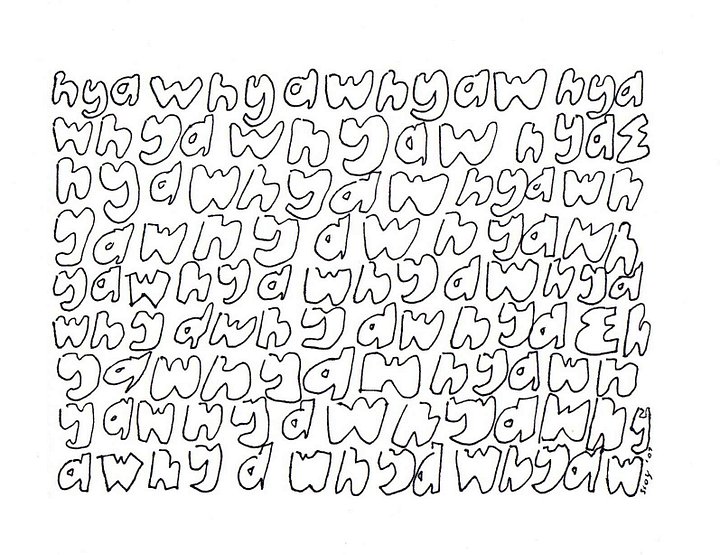 hyawhyawhyawhya
whyawhyawhyaw
hyawhyawhyawh
yawhyawhyawh
yawhyawhyawhya
whyawhyawhyawh
yawhyawhyawh
yawhyawhyawhy
awhyawhyawhyaw